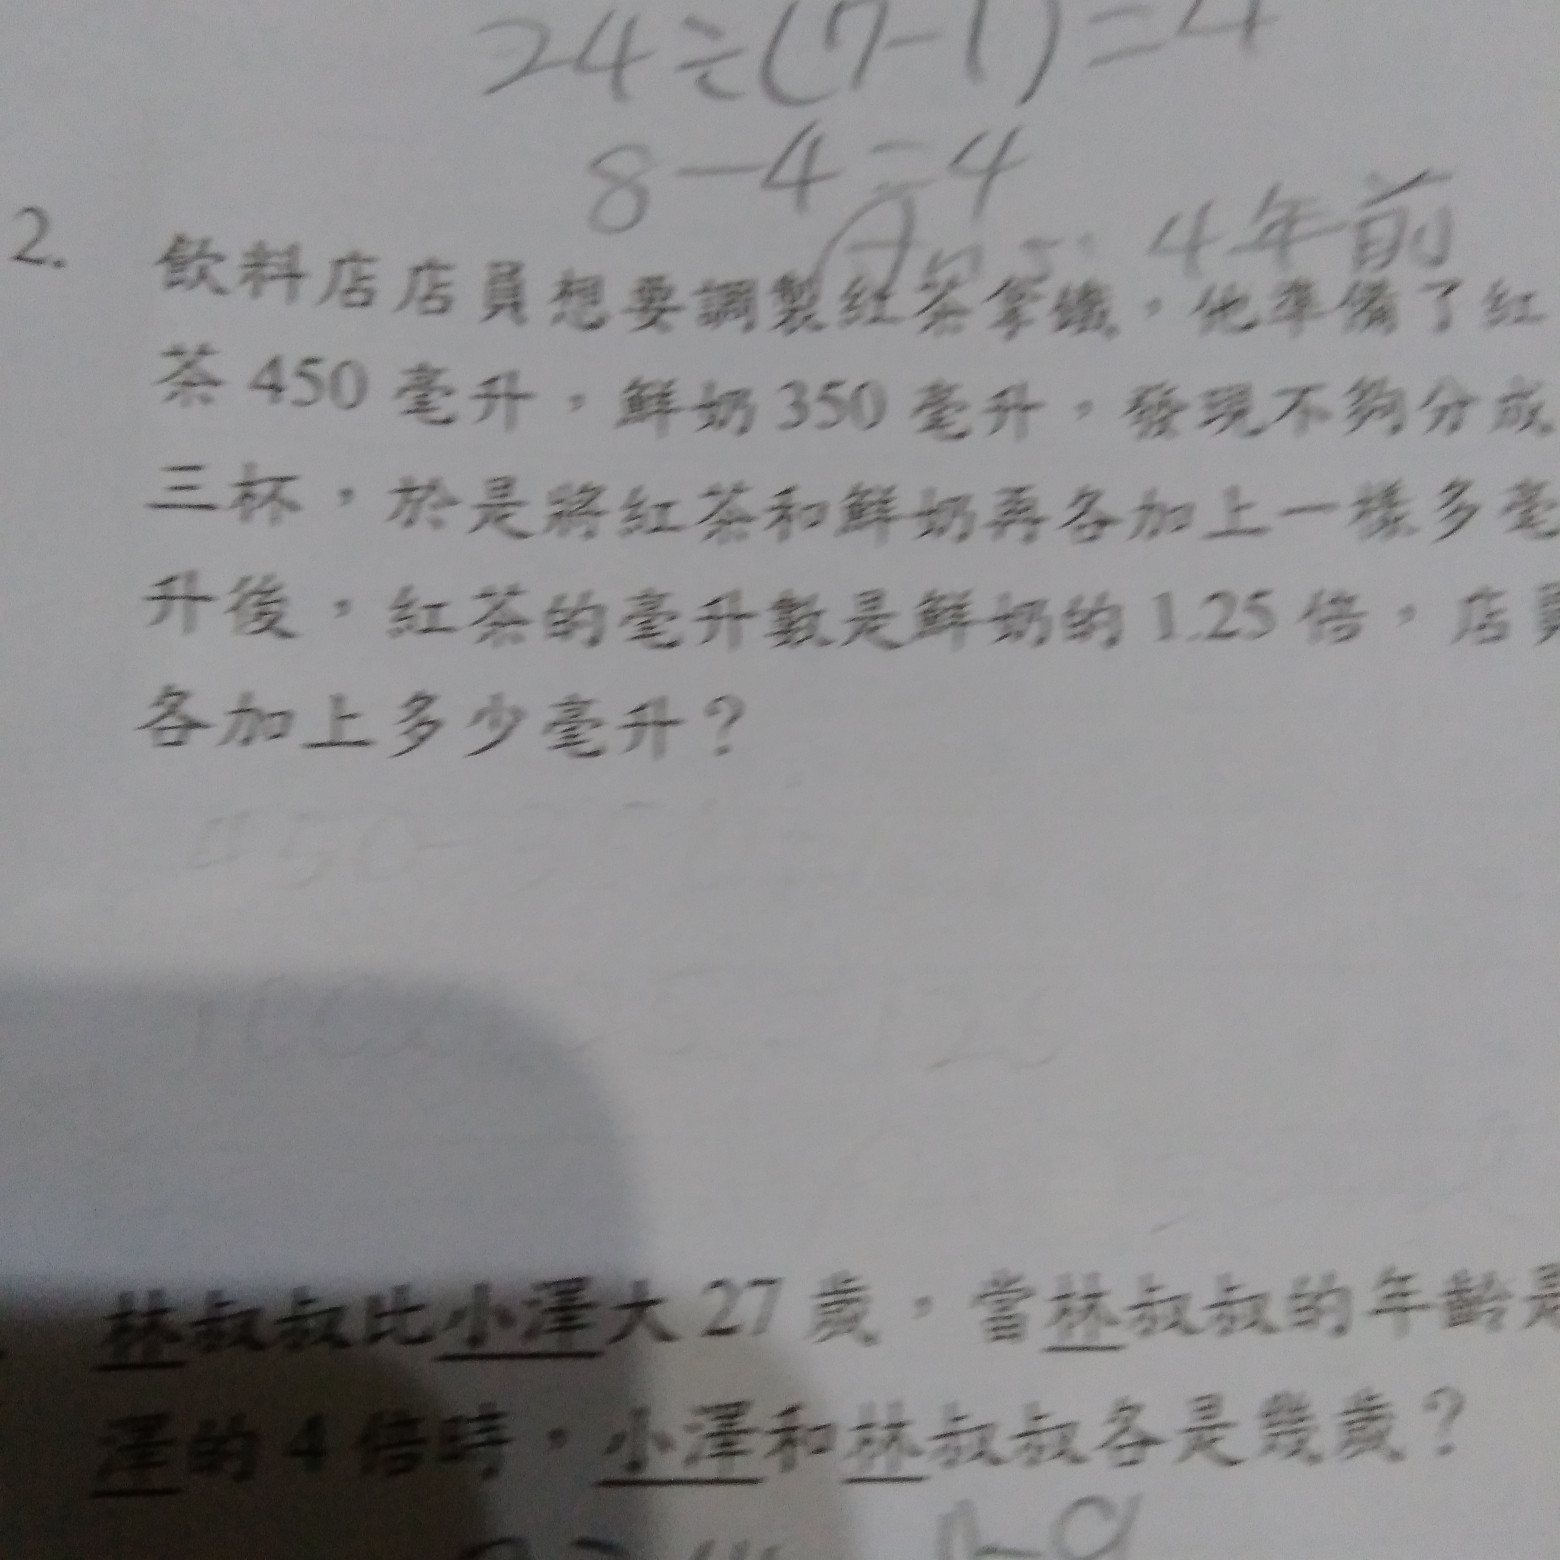 24÷(7-1)=4
8-4=4
Ans: 4年前
2. 飲料店店員想要調製紅茶拿鐵，他準備了紅
茶 450 毫升，鮮奶 350 毫升，發現不夠分成
三杯，於是將紅茶和鮮奶再各加上一樣多毫
升後，紅茶的毫升數是鮮奶的 1.25 倍，店員
各加上多少毫升？
林叔叔比小澤大 27 歲，當林叔叔的年齡是
澤的 4 倍時，小澤和林叔叔各是幾歲？